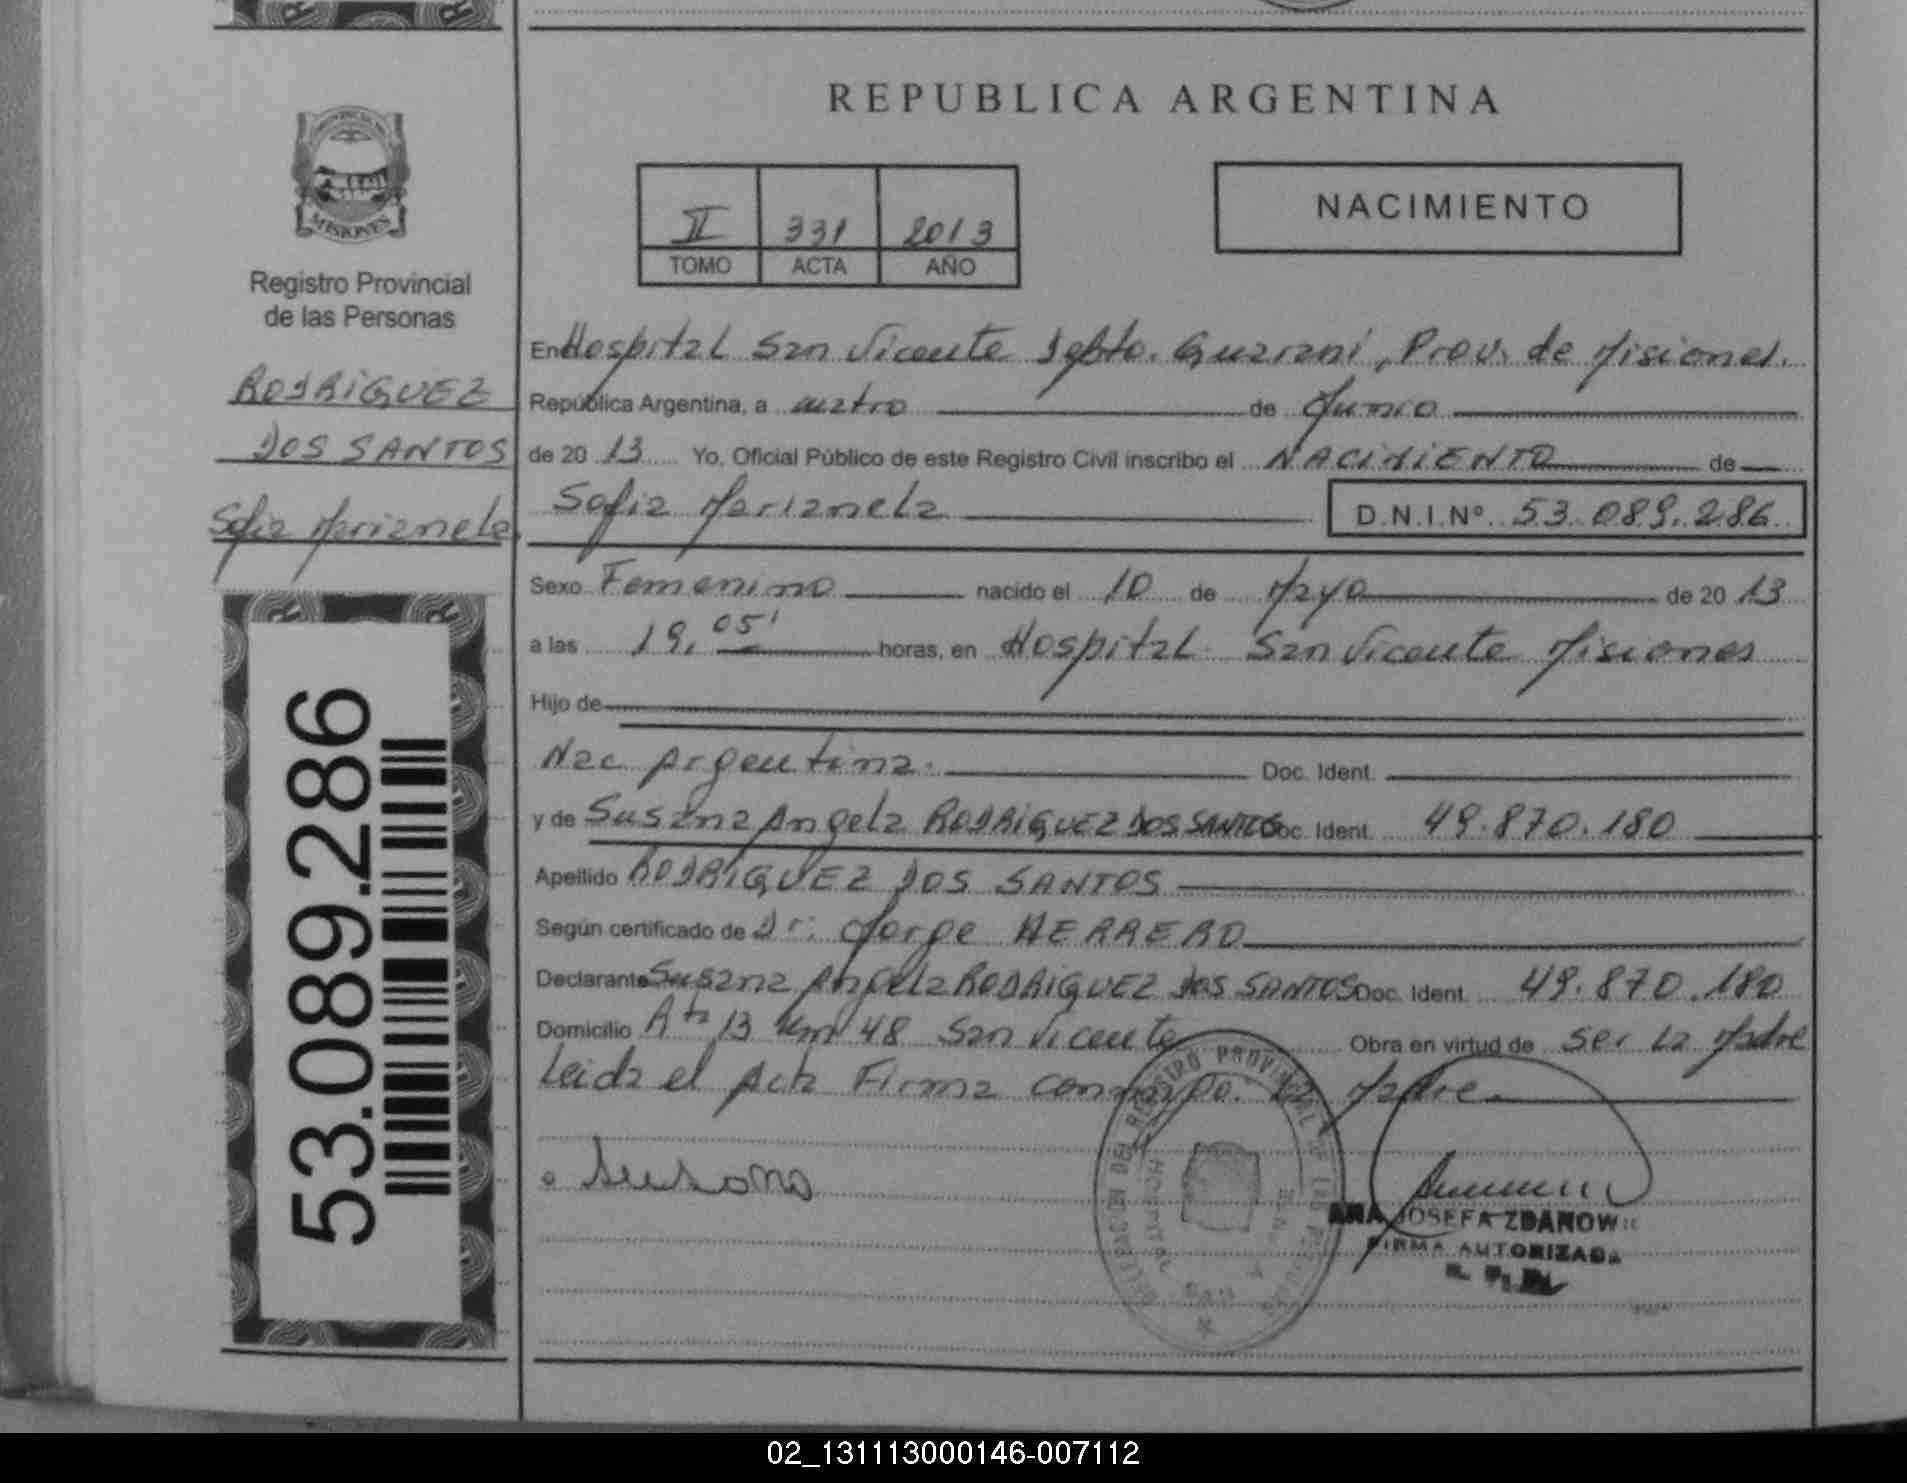 REPUBLICA ARGENTINA
NACIMIENTO
II 331 2013
TOMO ACTA AÑO
MISIONES
Registro Provincial
de las Personas
RODRiGUEZ
DOS SANTOS
Sofia Marianela
53.089.286
En Hospital San Vicente Dpto. Guarani, Prov. de Misiones.
República Argentina, a cuatro de Junio
de 20 13 Yo, Oficial Público de este Registro Civil inscribo el NACiMiENTO de
Sofia Marianela D.N.I.Nº 53.089.286
Sexo Femenino nacido el 10 de Mayo de 20 13
a las 19,05' horas, en Hospital San Vicente Misiones
Hijo de
Nac Argentina. Doc. Ident.
y de Susana Angela RODRiGUEZ DOS SANTOS Doc. Ident. 49.870.180
Apellido RODRiGUEZ DOS SANTOS
Según certificado de Dr: Jorge HERRERO
Declarante Susana Angela RODRiGUEZ DOS SANTOS Doc. Ident. 49.870.180
Domicilio Rta 13 Km 48 San Vicente Obra en virtud de ser la Madre
Leida el Acta Firma conmigo. la Madre.
Susana
DEL REGISTRO PROVINCIAL DE LAS PERSONAS
HOSPITAL
ANA JOSEFA ZDANOW
FIRMA AUTORIZADA
02_131113000146-007112